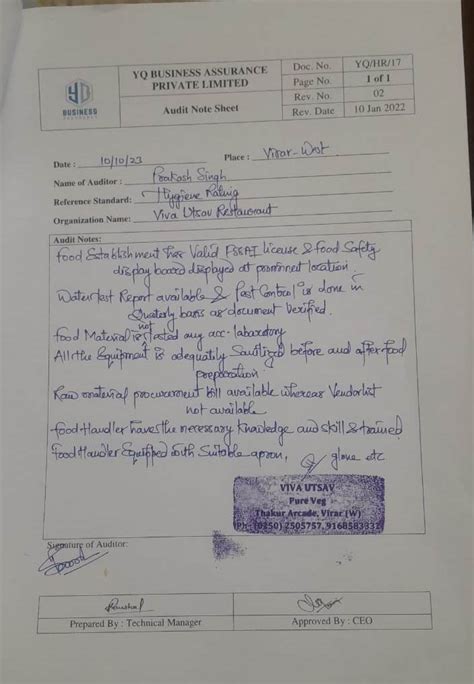 YQ BUSINESS
YQ BUSINESS ASSURANCE PRIVATE LIMITED
Audit Note Sheet
Doc. No. YQ/HR/17
Page No. 1 of 1
Rev. No. 02
Rev. Date 10 Jan 2022
Date : 10/10/23 Place : Virar-West
Name of Auditor : Prakash Singh
Reference Standard: Hygiene Rating
Organization Name: Viva Utsav Restaurant
Audit Notes:
Food Establishment has Valid FSSAI license & Food Safety
display board displayed at prominent location.
Water test Report available & Pest Control is done in
Quaterly basis as document verified.
Food Material is not tested any acc. laboratory
All the Equipment is adequately Sanitized before and after food
preparation
Raw material procurement bill available whereas Vendor list
not available
Food Handler haves the necessary knowledge and skill & trained
Food Handler Equipped with Suitable apron, glove etc
VIVA UTSAV
Pure Veg
Thakur Arcade, Virar (W)
Ph: (0250) 2505757, 9168583332
Signature of Auditor:
Prepared By : Technical Manager
Approved By : CEO